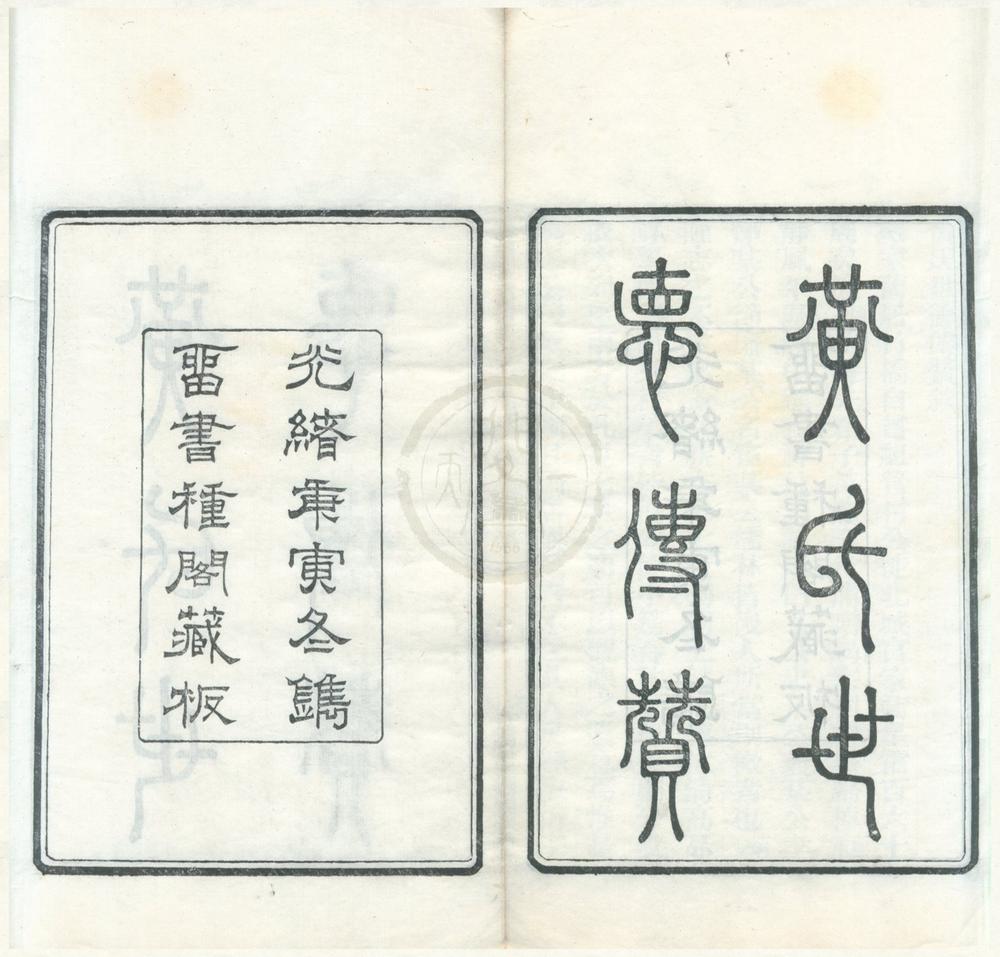 黃氏世
悳傳贊
光緒庚寅冬鐫
畱書種閣藏板